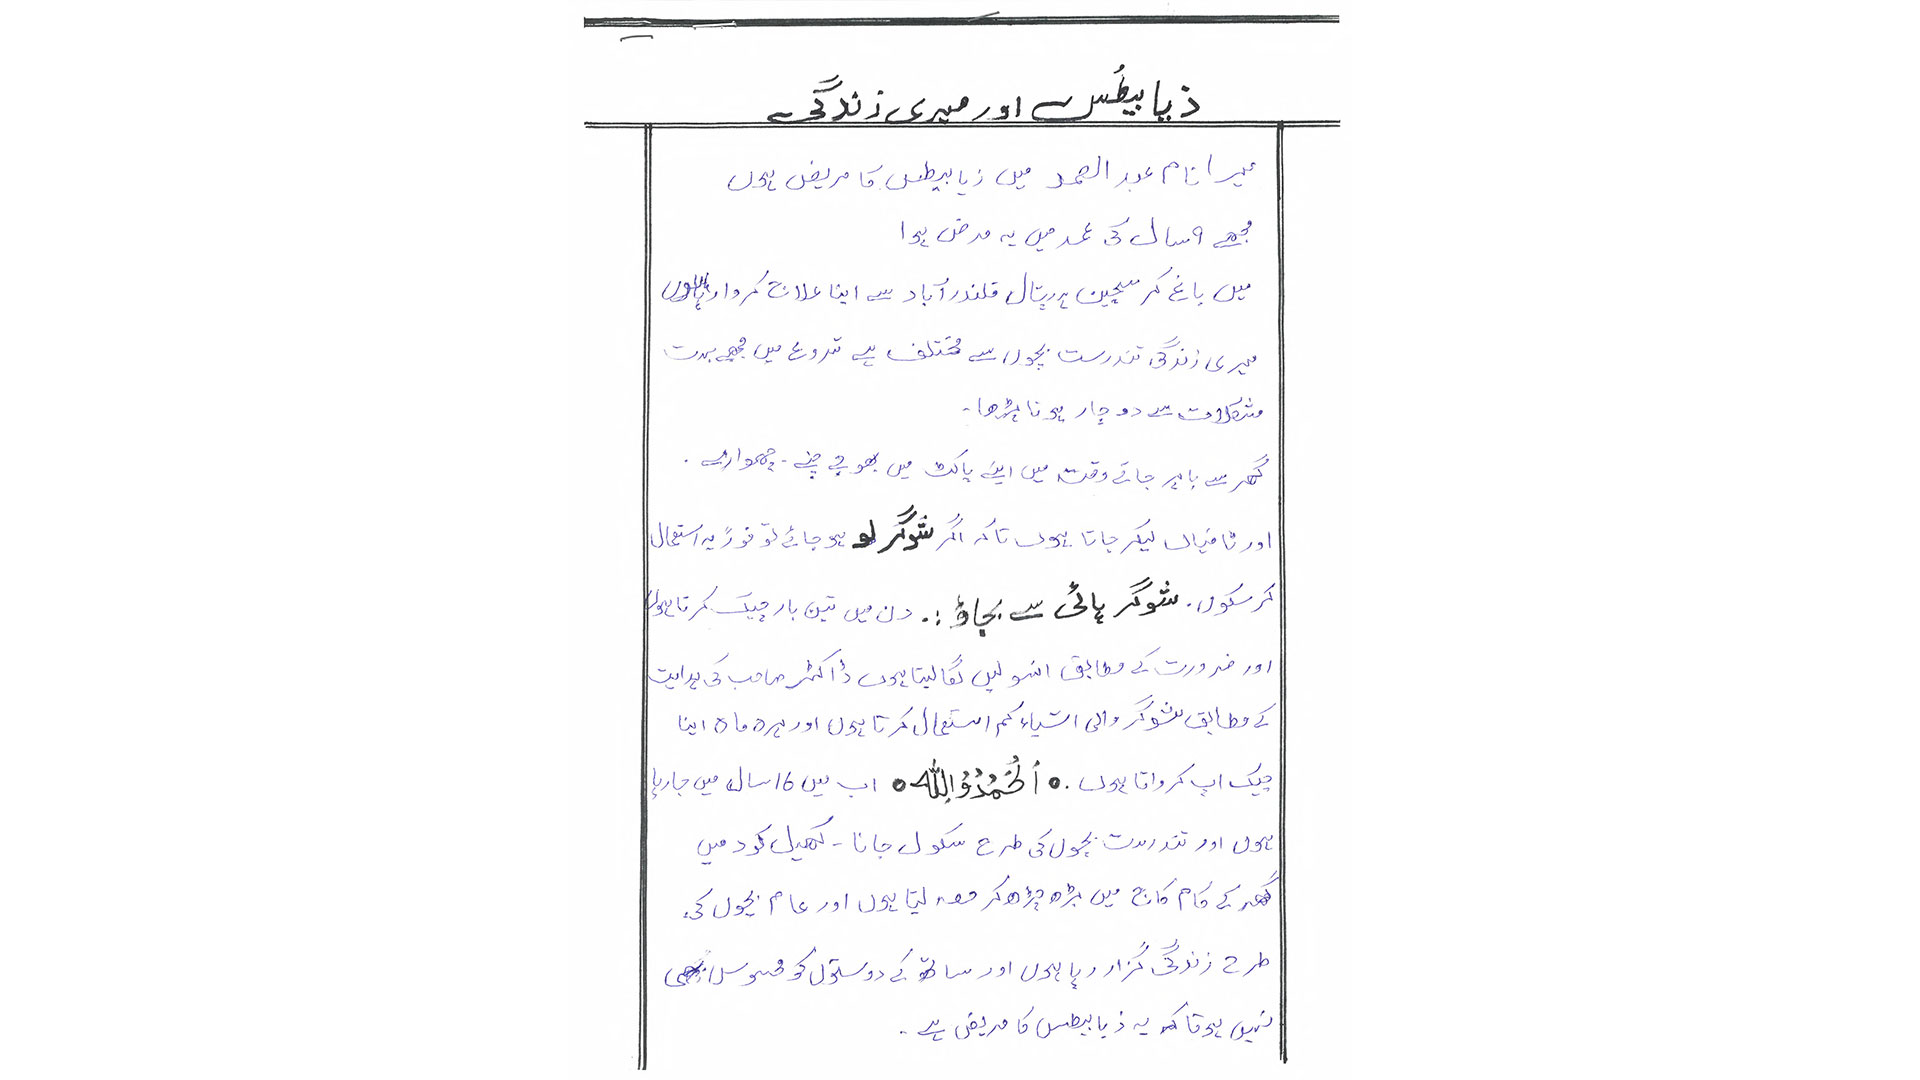 ذیابیطُس اور میری زندگی
میرا نام عبدالصمد میں ذیابیطس کا مریض ہوں
مجھے ۹ سال کی عمر میں یہ مرض ہوا
میں باغ کرسچین ہسپتال قلندرآباد سے اپنا علاج کروا رہا ہوں
میری زندگی تندرست بچوں سے مختلف ہے شروع میں مجھے بہت
مشکلات سے دوچار ہونا پڑھا۔
گھر سے باہر جاتے وقت میں اپنے پاکٹ میں چنے ۔ چھوارے ۔
اور ٹافیاں لیکر جاتا ہوں تاکہ اگر شوگر لو ہو جائے تو فورً یہ استعمال
کر سکوں۔ شوگر ہائی سے بچاؤ :۔ دن میں تین بار چیک کرتا ہوں
اور ضرورت کے مطابق انسولین لگا لیتا ہوں ڈاکٹر صاحب کی ہدایت
کے مطابق شوگر والی اشیاء کم استعمال کرتا ہوں اور ہر ماہ اپنا
چیک اپ کرواتا ہوں ۔ اَلْحَمْدُوُلِلّٰہ اب میں 16 سال میں جا رہا
ہوں اور تندرست بچوں کی طرح سکول جانا ۔ کھیل کود میں
گھر کے کام کاج میں بڑھ چڑھ کر لیتا ہوں اور عام بچوں کی
طرح زندگی گزار رہا ہوں اور ساتھ کے دوستوں کو محسوس بھی
نہیں ہوتا کہ یہ ذیابیطس کا مریض ہے ۔